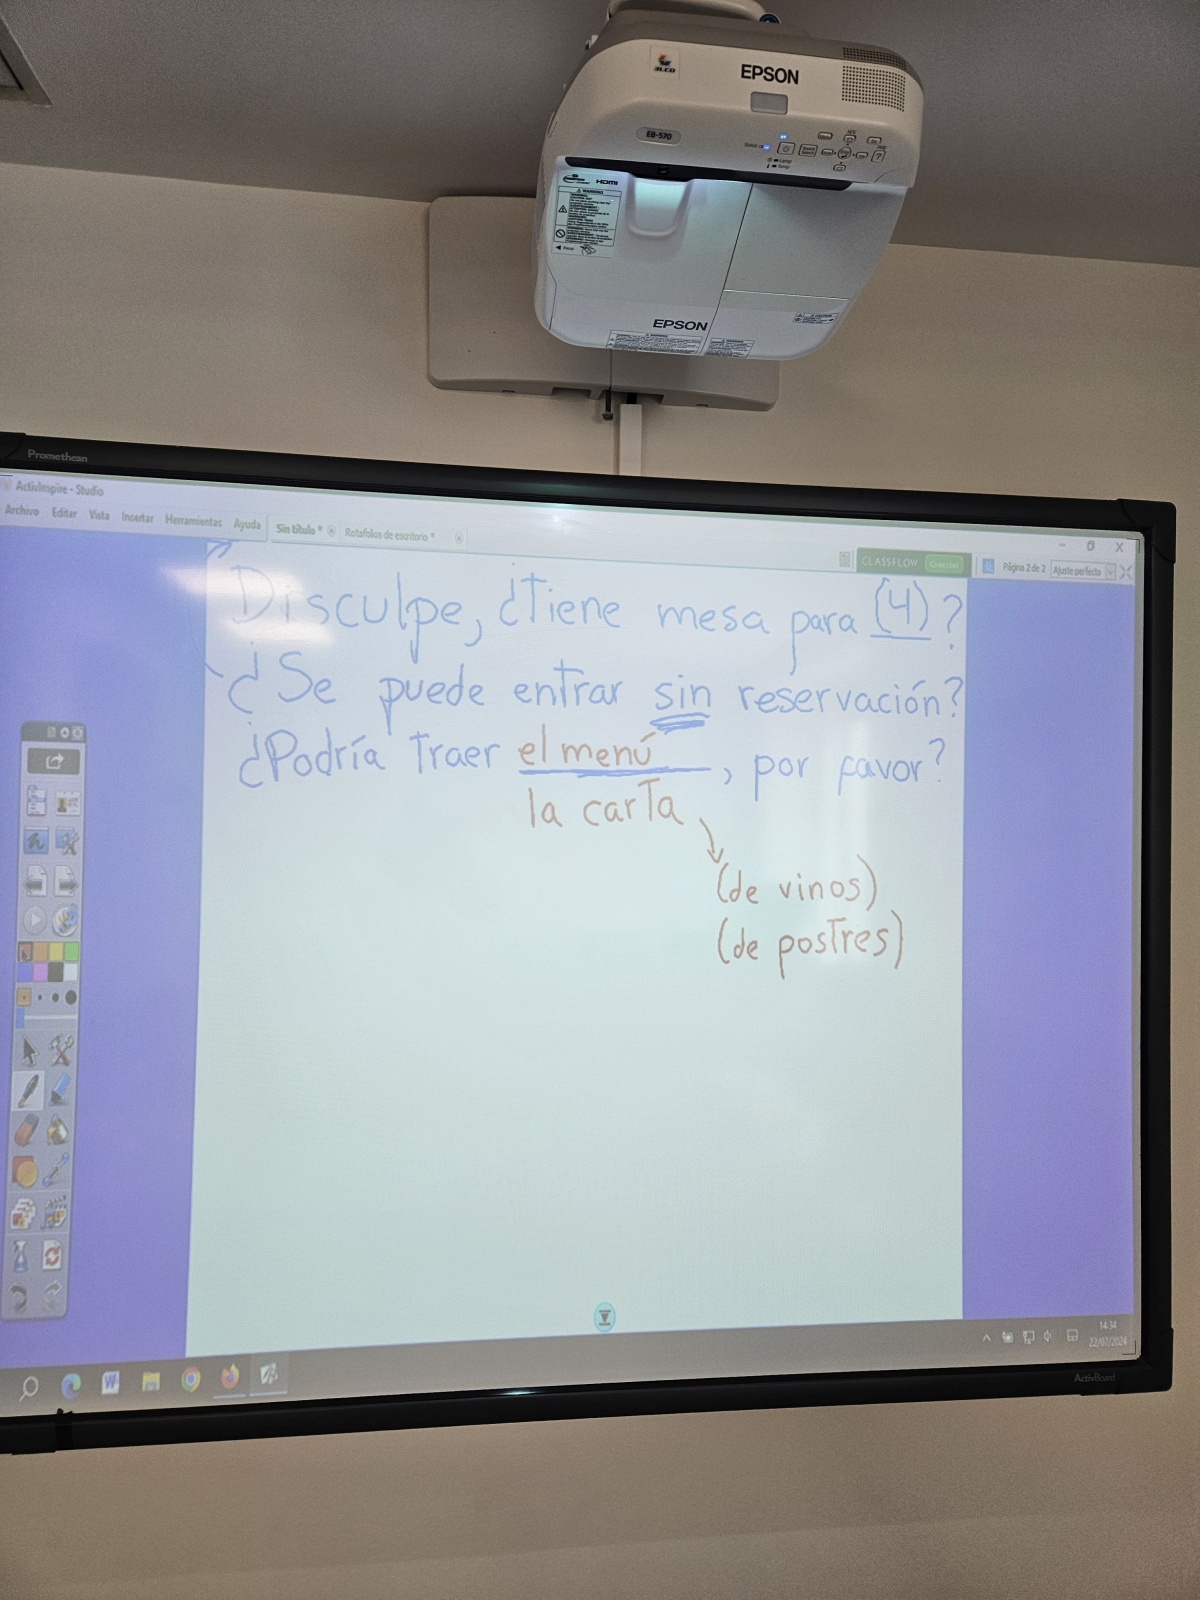 3LCD
EPSON
EB-570
HDMI
WARNING
EPSON
Promethean
ActivInspire - Studio
Archivo Editar Vista Insertar Herramientas Ayuda
Sin título * Rotafolios de escritorio *
CLASSFLOW Conectar
Página 2 de 2 Ajuste perfecto
Disculpe, ¿Tiene mesa para (4)?
¿Se puede entrar sin reservación?
¿Podría traer el menú, por favor?
la carta
(de vinos)
(de postres)
14:34
22/07/2024
ActivBoard